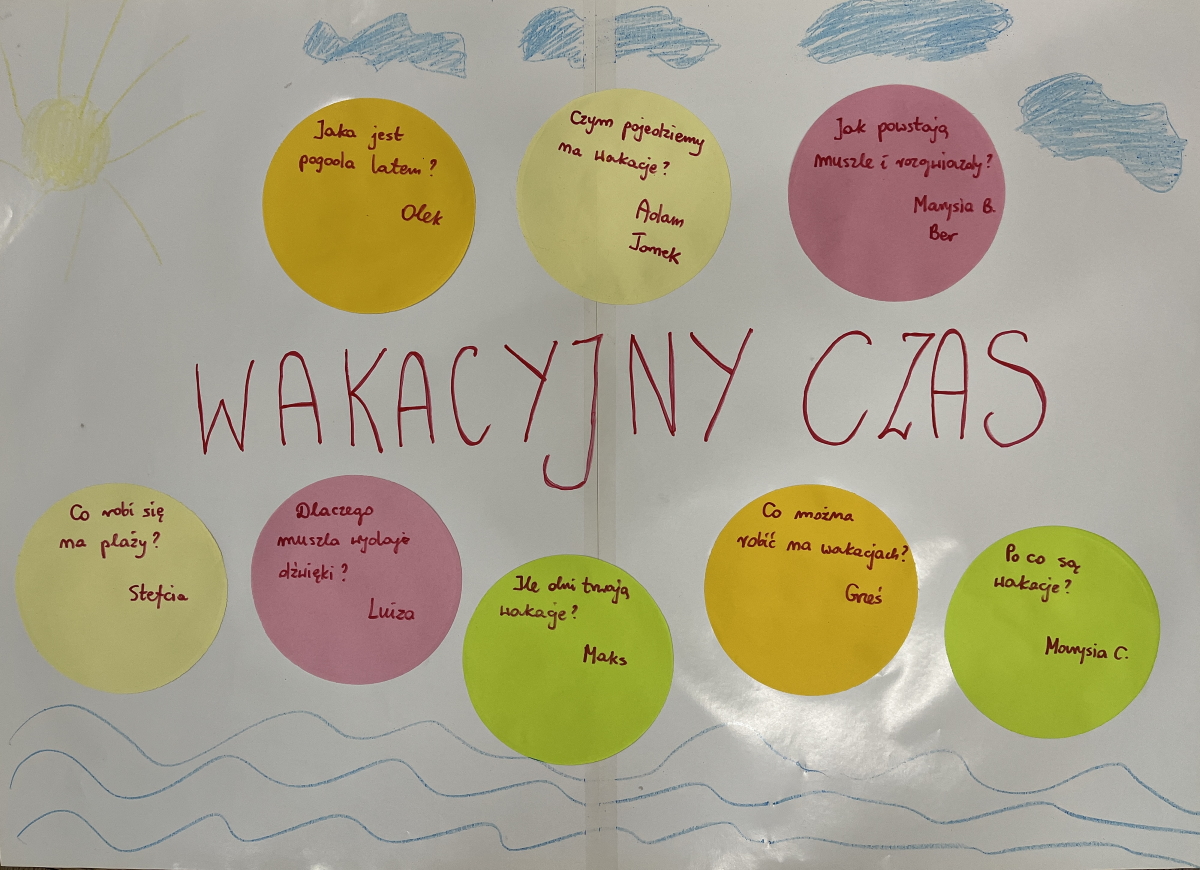 Jaka jest
pogoda latem?
Olek
Czym pojedziemy
na wakacje?
Adam
Tomek
Jak powstają
muszle i rozgwiazdy?
Marysia B.
Ber
WAKACYJNY CZAS
Co robi się
na plaży?
Stefcia
Dlaczego
muszla wydaje
dźwięki?
Luiza
Ile dni trwają
wakacje?
Maks
Co można
robić na wakacjach?
Grześ
Po co są
wakacje?
Marysia C.